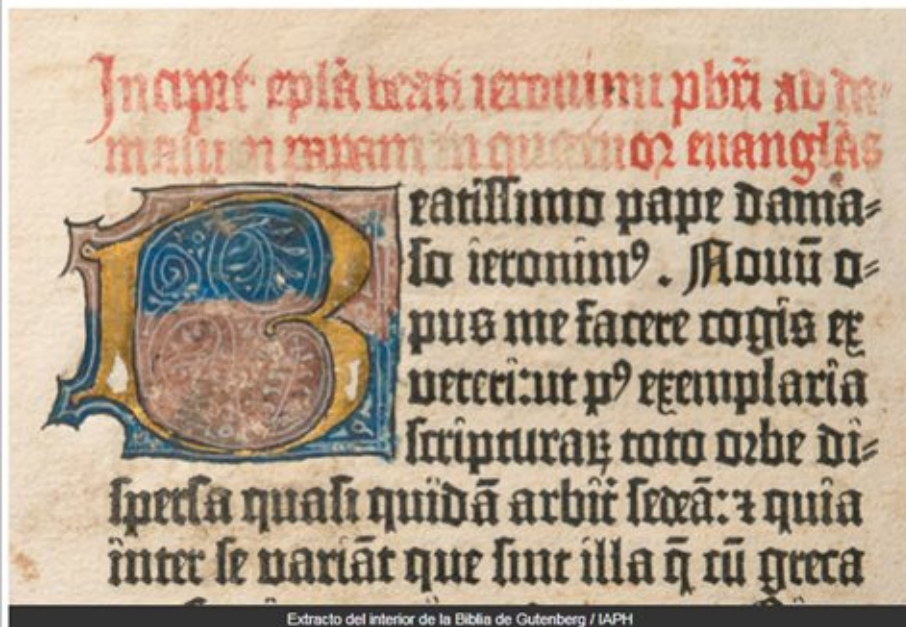 Incipit epl̃a beati ieronimi pbr̃i ad da⸗
masū papam in quatuor euangl̃as
Beatissimo pape dama⸗
so ieronimꝰ. Nouū o⸗
pus me facere cogis ex
veteri: ut pꝰ exemplaria
scripturaꝝ toto orbe di⸗
spersa quasi quidā arbit̃ sedeā: ⁊ quia
inter se variāt que sint illa q̄ cū greca
Extracto del interior de la Biblia de Gutenberg / IAPH